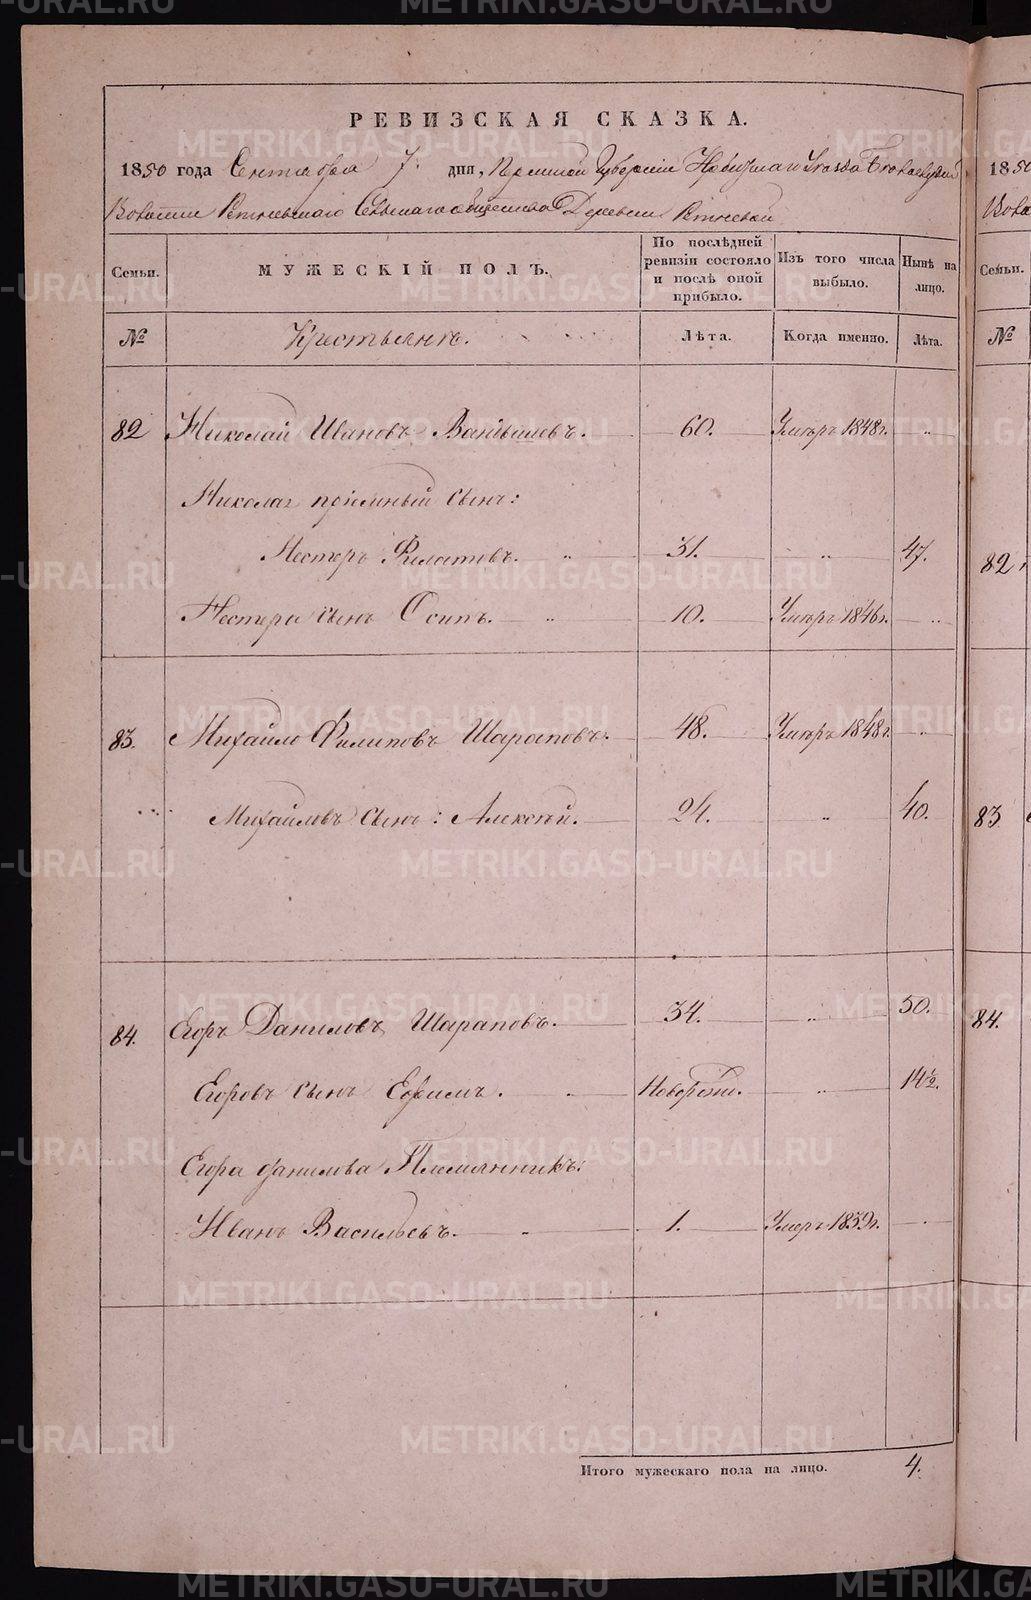 РЕВИЗСКАЯ СКАЗКА.
1850 года Сентября 7. дня, Пермской Губерніи Ирбитскаго Уѣзда
Волости Сельскаго общества Деревни
Семьи.
МУЖЕСКІЙ ПОЛЪ.
По послѣдней ревизіи состояло и послѣ оной прибыло.
Изъ того числа выбыло.
Нынѣ на лицо.
№
Крестьяне.
Лѣта.
Когда именно.
Лѣта.
82 Николай Ивановъ 60. Умеръ 1848 г. "
Николая пріемный сынъ:
Нестеръ Филатовъ. " 31. " 47.
Нестера сынъ Осипъ. " 10. Умеръ 1846 г. "
83. Михайло Филиповъ Шараповъ. 48. Умеръ 1848 г. "
Михайловъ сынъ: Алексѣй. 24. " 40.
84. Егоръ Даниловъ Шараповъ. 34. " 50.
Егоровъ сынъ Ефимъ. " Новорожд. " 14½.
Егора Данилова Племянникъ:
Иванъ Васильевъ. " 1. Умеръ 1839 г. "
Итого мужескаго пола на лицо. 4.
1850
Семьи.
№
82
83
84.
METRIKI.GASO-URAL.RU